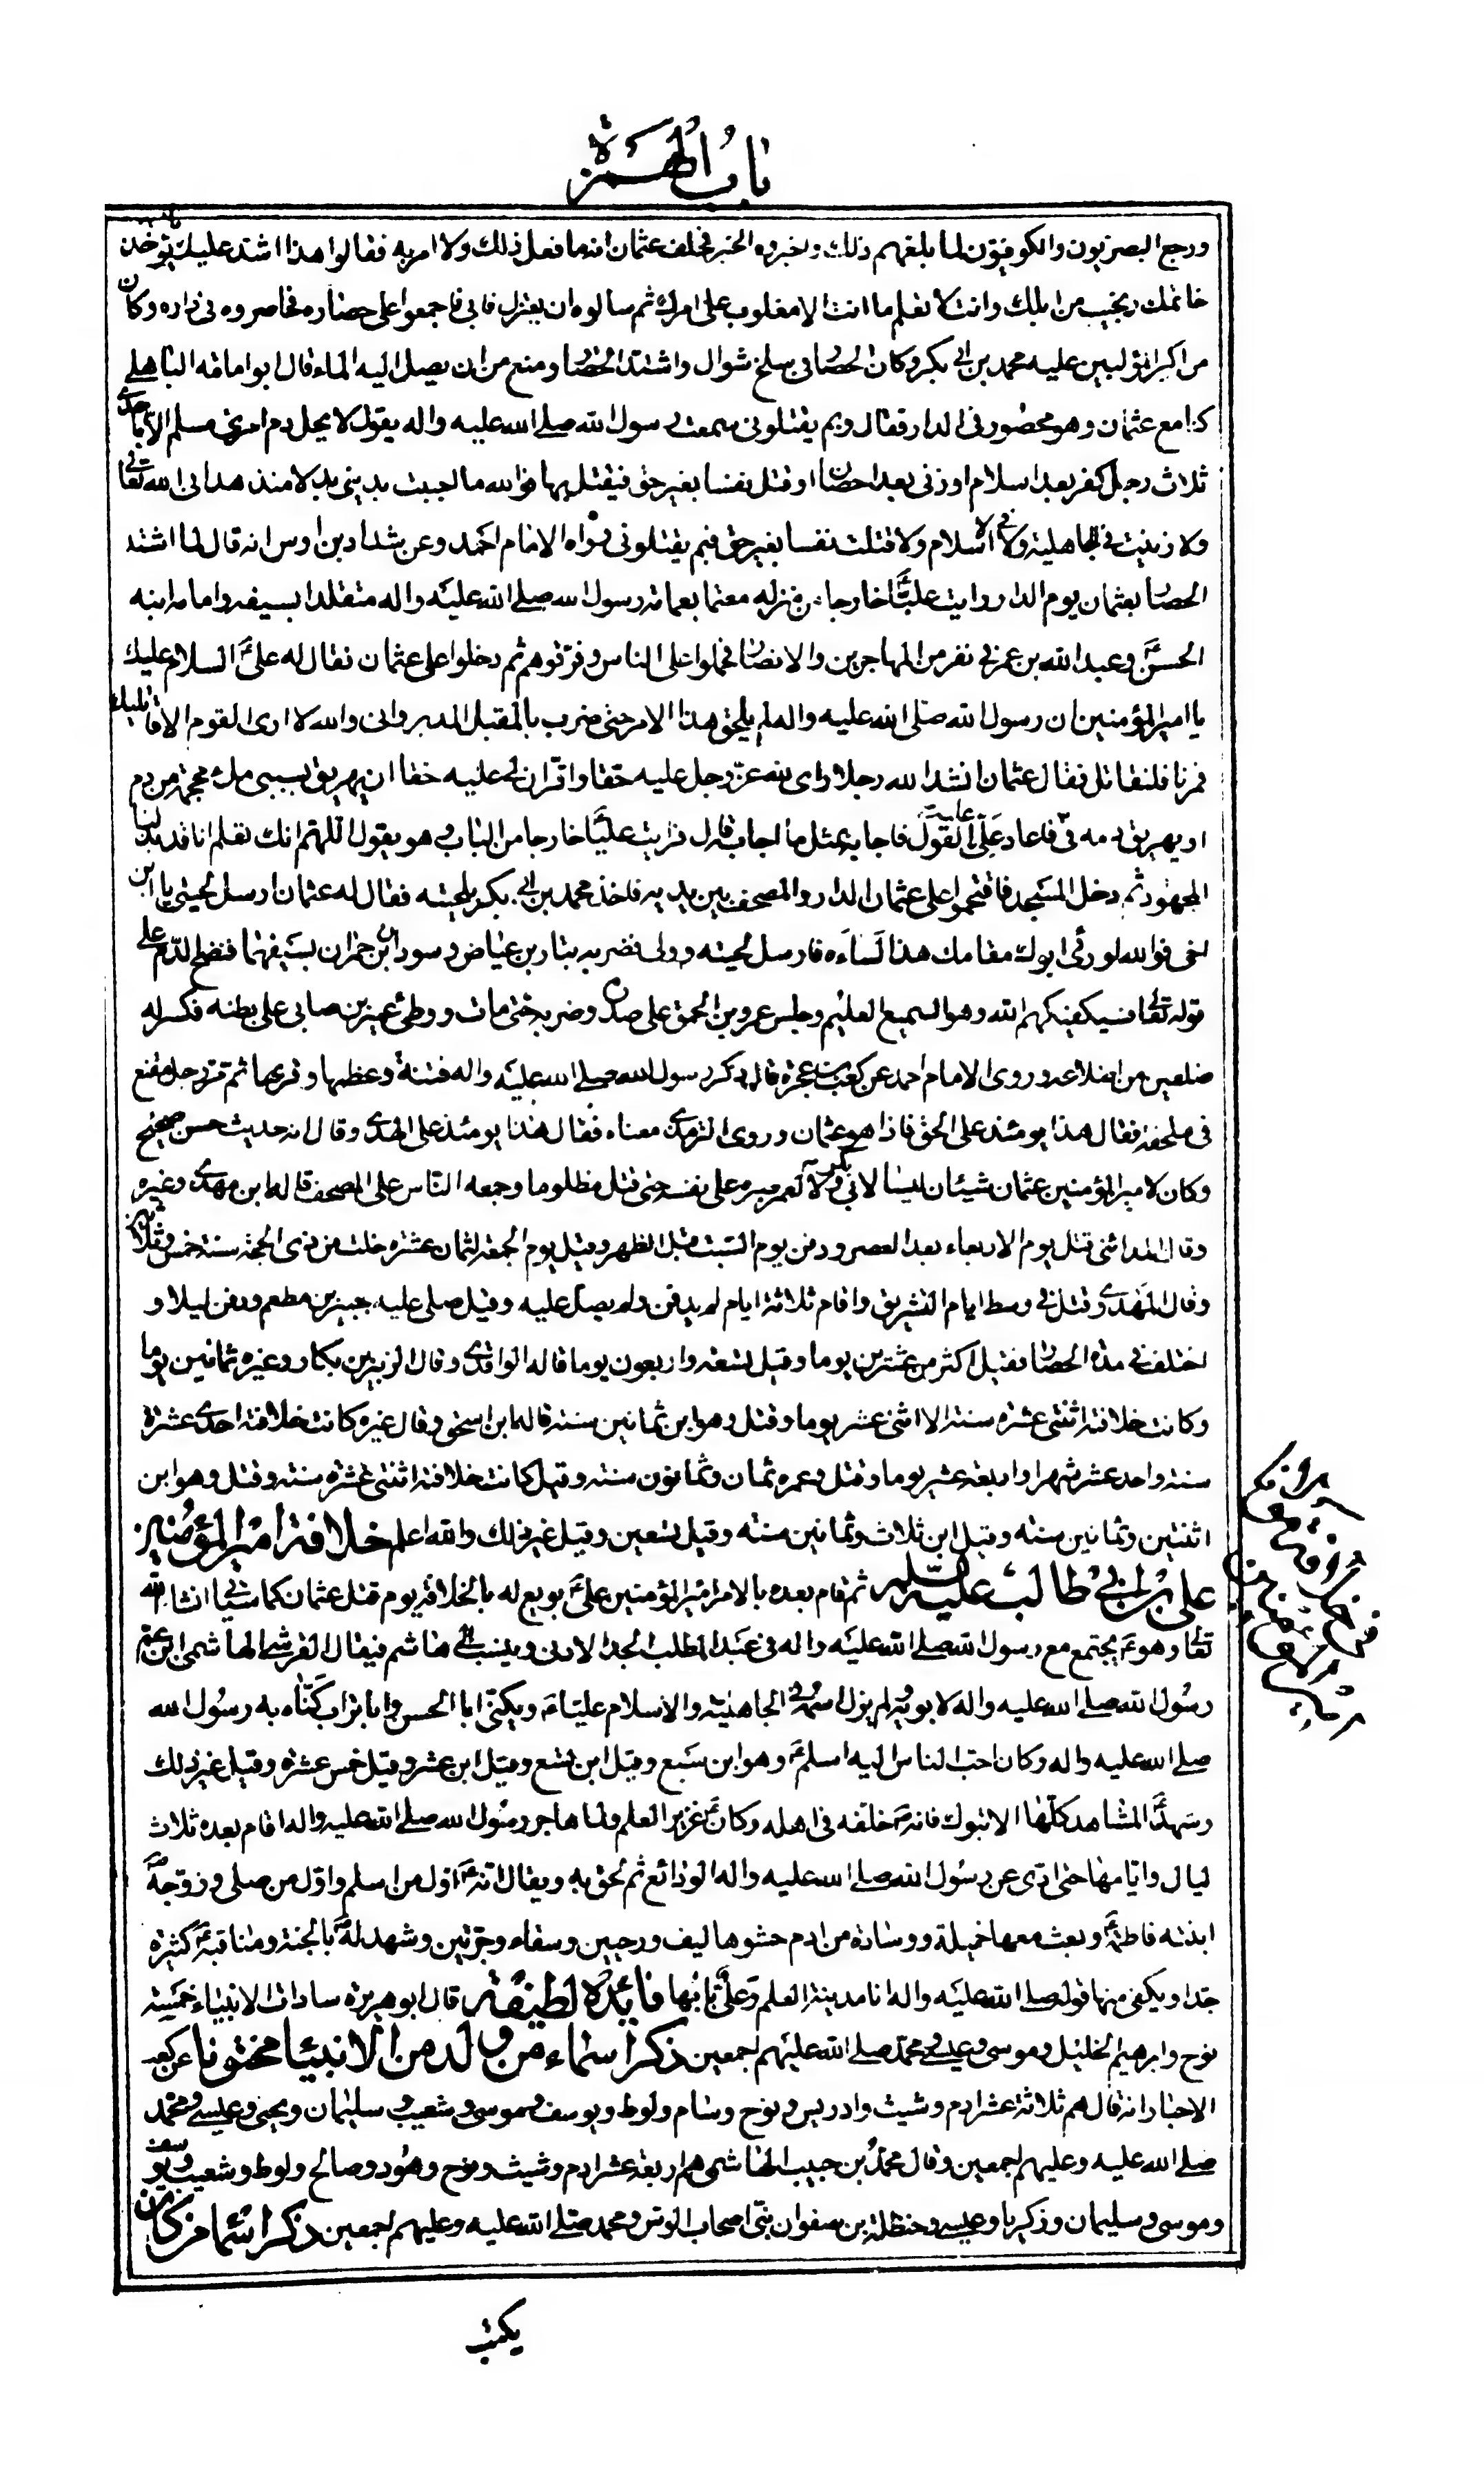 باب الهمزة
ورجع البصريون والكوفيون لما بلغهم ذلك واخبروه الخبر فحلف عثمان انه ما فعل ذلك ولا امر به فقالوا هذا اشد عليك يؤخذ
خاتمك ونجيب من ابلك وانت لا تعلم ما انت الا مغلوب على امرك ثم سالوه ان يعتزل فابى فاجمعوا على حصاره فحاصروه في داره وكان
من اكبر المؤلبين عليه محمد بن ابى بكر وكان الحصار في سلخ شوال واشتد الحصار ومنع من ان يصل اليه الماء قال ابو امامة الباهلى
كنا مع عثمان وهو محصور في الدار فقال وبم يقتلونى سمعت رسول الله صلى الله عليه واله يقول لا يحل دم امرئ مسلم الا باحدى
ثلاث رجل كفر بعد اسلام او زنى بعد احصان او قتل نفسا بغير حق فيقتل بها فوالله ما احببت بدينى بدلا منذ هدانى الله تعالى
ولا زنيت في الجاهلية ولا في الاسلام ولا قتلت نفسا بغير حق فبم يقتلونى رواه الامام احمد وعن شداد بن اوس انه قال لما اشتد
الحصار بعثمان يوم الدار رايت عليا خارجا من منزله معتما بعمامة رسول الله صلى الله عليه واله متقلدا بسيفه وامامه ابنه
الحسن وعبد الله بن عمر في نفر من المهاجرين والانصار فحملوا على الناس وفرقوهم ثم دخلوا على عثمان فقال له على السلام عليك
يا امير المؤمنين ان رسول الله صلى الله عليه واله لم يلحق هذا الامر حتى ضرب بالمقبل المدبر وانى والله لا ارى القوم الا قاتليك
فمرنا فلنقاتل فقال عثمان انشد الله رجلا راى لله عز وجل عليه حقا واقر ان لى عليه حقا ان يهريق بسببى ملء محجمة من دم
او يهريق دمه في فاعاد على عليه القول فاجابه بمثل ما اجاب قال فرايت عليا خارجا من الباب وهو يقول اللهم انك تعلم انا قد بذلنا
المجهود ثم دخل المسجد فاقتحموا على عثمان الدار والمصحف بين يديه فاخذ محمد بن ابى بكر بلحيته فقال له عثمان ارسل لحيتى يا ابن
اخى فوالله لو رأى ابوك مقامك هذا لساءه فارسل لحيته وولى فضربه بتار بن عياض وسودان بن حمران بسيفهما فنضح الدم على
قوله تعالى فسيكفيكهم الله وهو السميع العليم وجلس عمرو بن الحمق على صدره وضربه حتى مات ووطئ عمير بن صابى على بطنه فكسر له
ضلعين من اضلاعه وروى الامام احمد عن كعب بن عجرة قال ذكر رسول الله صلى الله عليه واله فتنة وعظمها وقربها ثم مر رجل مقنع
في ملحفة فقال هذا يومئذ على الحق فاذا هو عثمان وروى الترمذى معناه فقال هذا يومئذ على الهدى وقال انه حديث حسن صحيح
وكان لامير المؤمنين عثمان شيئان ليسا لابى بكر ولا لعمر صبره على نفسه حتى قتل مظلوما وجمعه الناس على المصحف قاله ابن مهدى وغيره
وقال المدائنى قتل يوم الاربعاء بعد العصر ودفن يوم السبت قبل الظهر وقيل يوم الجمعة لثمان عشرة خلت من ذى الحجة سنة خمس وثلاثين
وقال المهدى وقتل في وسط ايام التشريق واقام ثلاثة ايام لم يدفن ولم يصل عليه وقيل صلى عليه جبير بن مطعم ودفن ليلا و
اختلف في مدة الحصار فقيل اكثر من عشرين يوما وقيل تسعة واربعون يوما قاله الواقدى وقال الزبير بن بكار وغيره ثمانين يوما
وكانت خلافته اثنتى عشرة سنة الا اثنى عشر يوما وقتل وهو ابن ثمانين سنة قاله ابن اسحق وقال غيره كانت خلافته احدى عشرة
سنة واحد عشر شهرا واربعة عشر يوما وقتل وعمره ثمان وثمانون سنة وقيل كانت خلافته اثنتى عشرة سنة وقتل وهو ابن
اثنتين وثمانين سنة وقيل ابن ثلاث وثمانين سنة وقيل تسعين وقيل غير ذلك والله اعلم خلافة امير المؤمنين
على بن ابى طالب عليه السلام ثم قام بعده بالامر امير المؤمنين على بويع له بالخلافة يوم قتل عثمان كما سياتى انشاء الله
تعالى وهو يجتمع مع رسول الله صلى الله عليه واله في عبد المطلب الجد الادنى وينسب الى هاشم فيقال القرشى الهاشمى ابن عم
رسول الله صلى الله عليه واله لابويه لم يزل اسمه في الجاهلية والاسلام عليا ويكنى ابا الحسن وابا تراب كناه به رسول الله
صلى الله عليه واله وكان احب الناس اليه اسلم وهو ابن سبع وقيل ابن تسع وقيل ابن عشر وقيل خمس عشرة وقيل غير ذلك
وشهد المشاهد كلها الا تبوك فانه خلفه في اهله وكان غزير العلم ولما هاجر رسول الله صلى الله عليه واله اقام بعده ثلاث
ليال وايامها حتى ادى عن رسول الله صلى الله عليه واله الودائع ثم لحق به ويقال انه اول من اسلم واول من صلى وزوجه
ابنته فاطمة وبعث معها خميلة ووسادة من ادم حشوها ليف ورحيين وسقاء وجرتين وشهد له بالجنة ومناقبه كثيرة
جدا ويكفى منها قوله صلى الله عليه واله انا مدينة العلم وعلى بابها فائدة لطيفة قال ابو هريرة سادات الانبياء خمسة
نوح وابرهيم الخليل وموسى وعيسى ومحمد صلى الله عليهم اجمعين ذكر اسماء من ولد من الانبياء مختونا عن كعب
الاحبار انه قال هم ثلاثة عشر ادم وشيث وادريس ونوح وسام ولوط ويوسف وموسى وشعيب وسليمان ويحيى وعيسى ومحمد
صلى الله عليه وعليهم اجمعين وقال محمد بن حبيب الهاشمى هم اربعة عشر ادم وشيث ونوح وهود وصالح ولوط وشعيب ويوسف
وموسى وسليمان وزكريا وعيسى وحنظلة بن صفوان نبى اصحاب الرس ومحمد صلى الله عليه وعليهم اجمعين ذكر اسماء من كان
يكتب